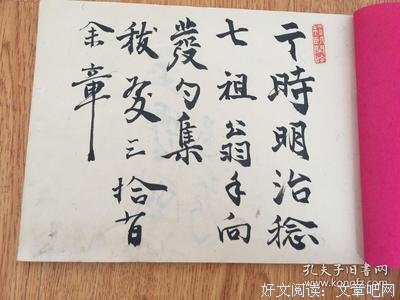 于時明治稔
七祖翁手向
發句集
三拾百
余章
孔夫子旧书网
www.kongfz.com
好文阅读：文章吧网